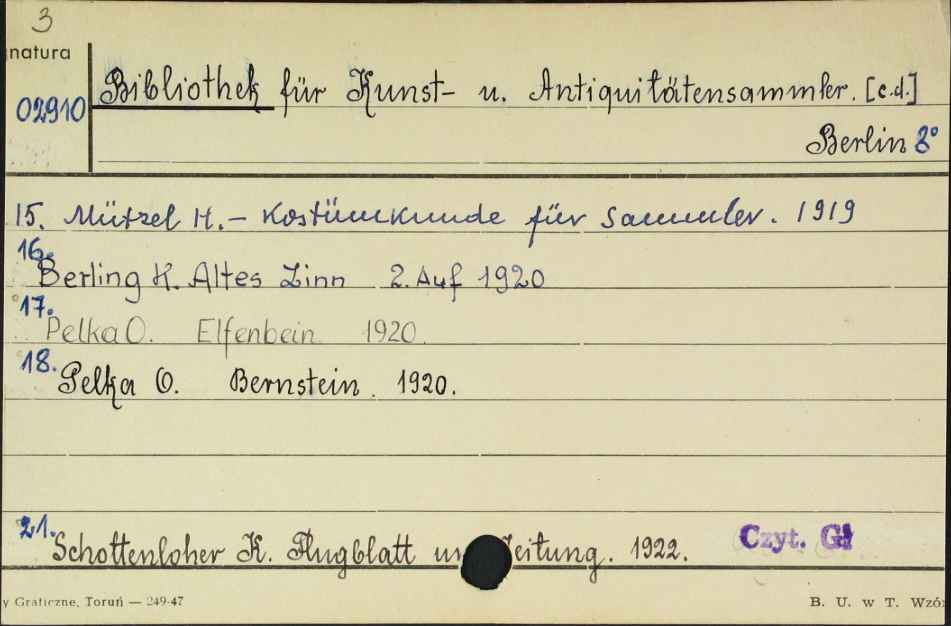 3
natura
02910
Bibliothek für Kunst- u. Antiquitätensammler. [c.d.]
Berlin 8°
15. Mützel H. – Kostümkunde für Sammler. 1919
16. Berling K. Altes Zinn 2. Auf 1920
17. Pelka O. Elfenbein 1920.
18. Pelka O. Bernstein. 1920.
21. Schottenloher K. Flugblatt un Zeitung. 1922.
Czyt. Gł
y Graficzne, Toruń — 249-47
B. U. w T. Wzó